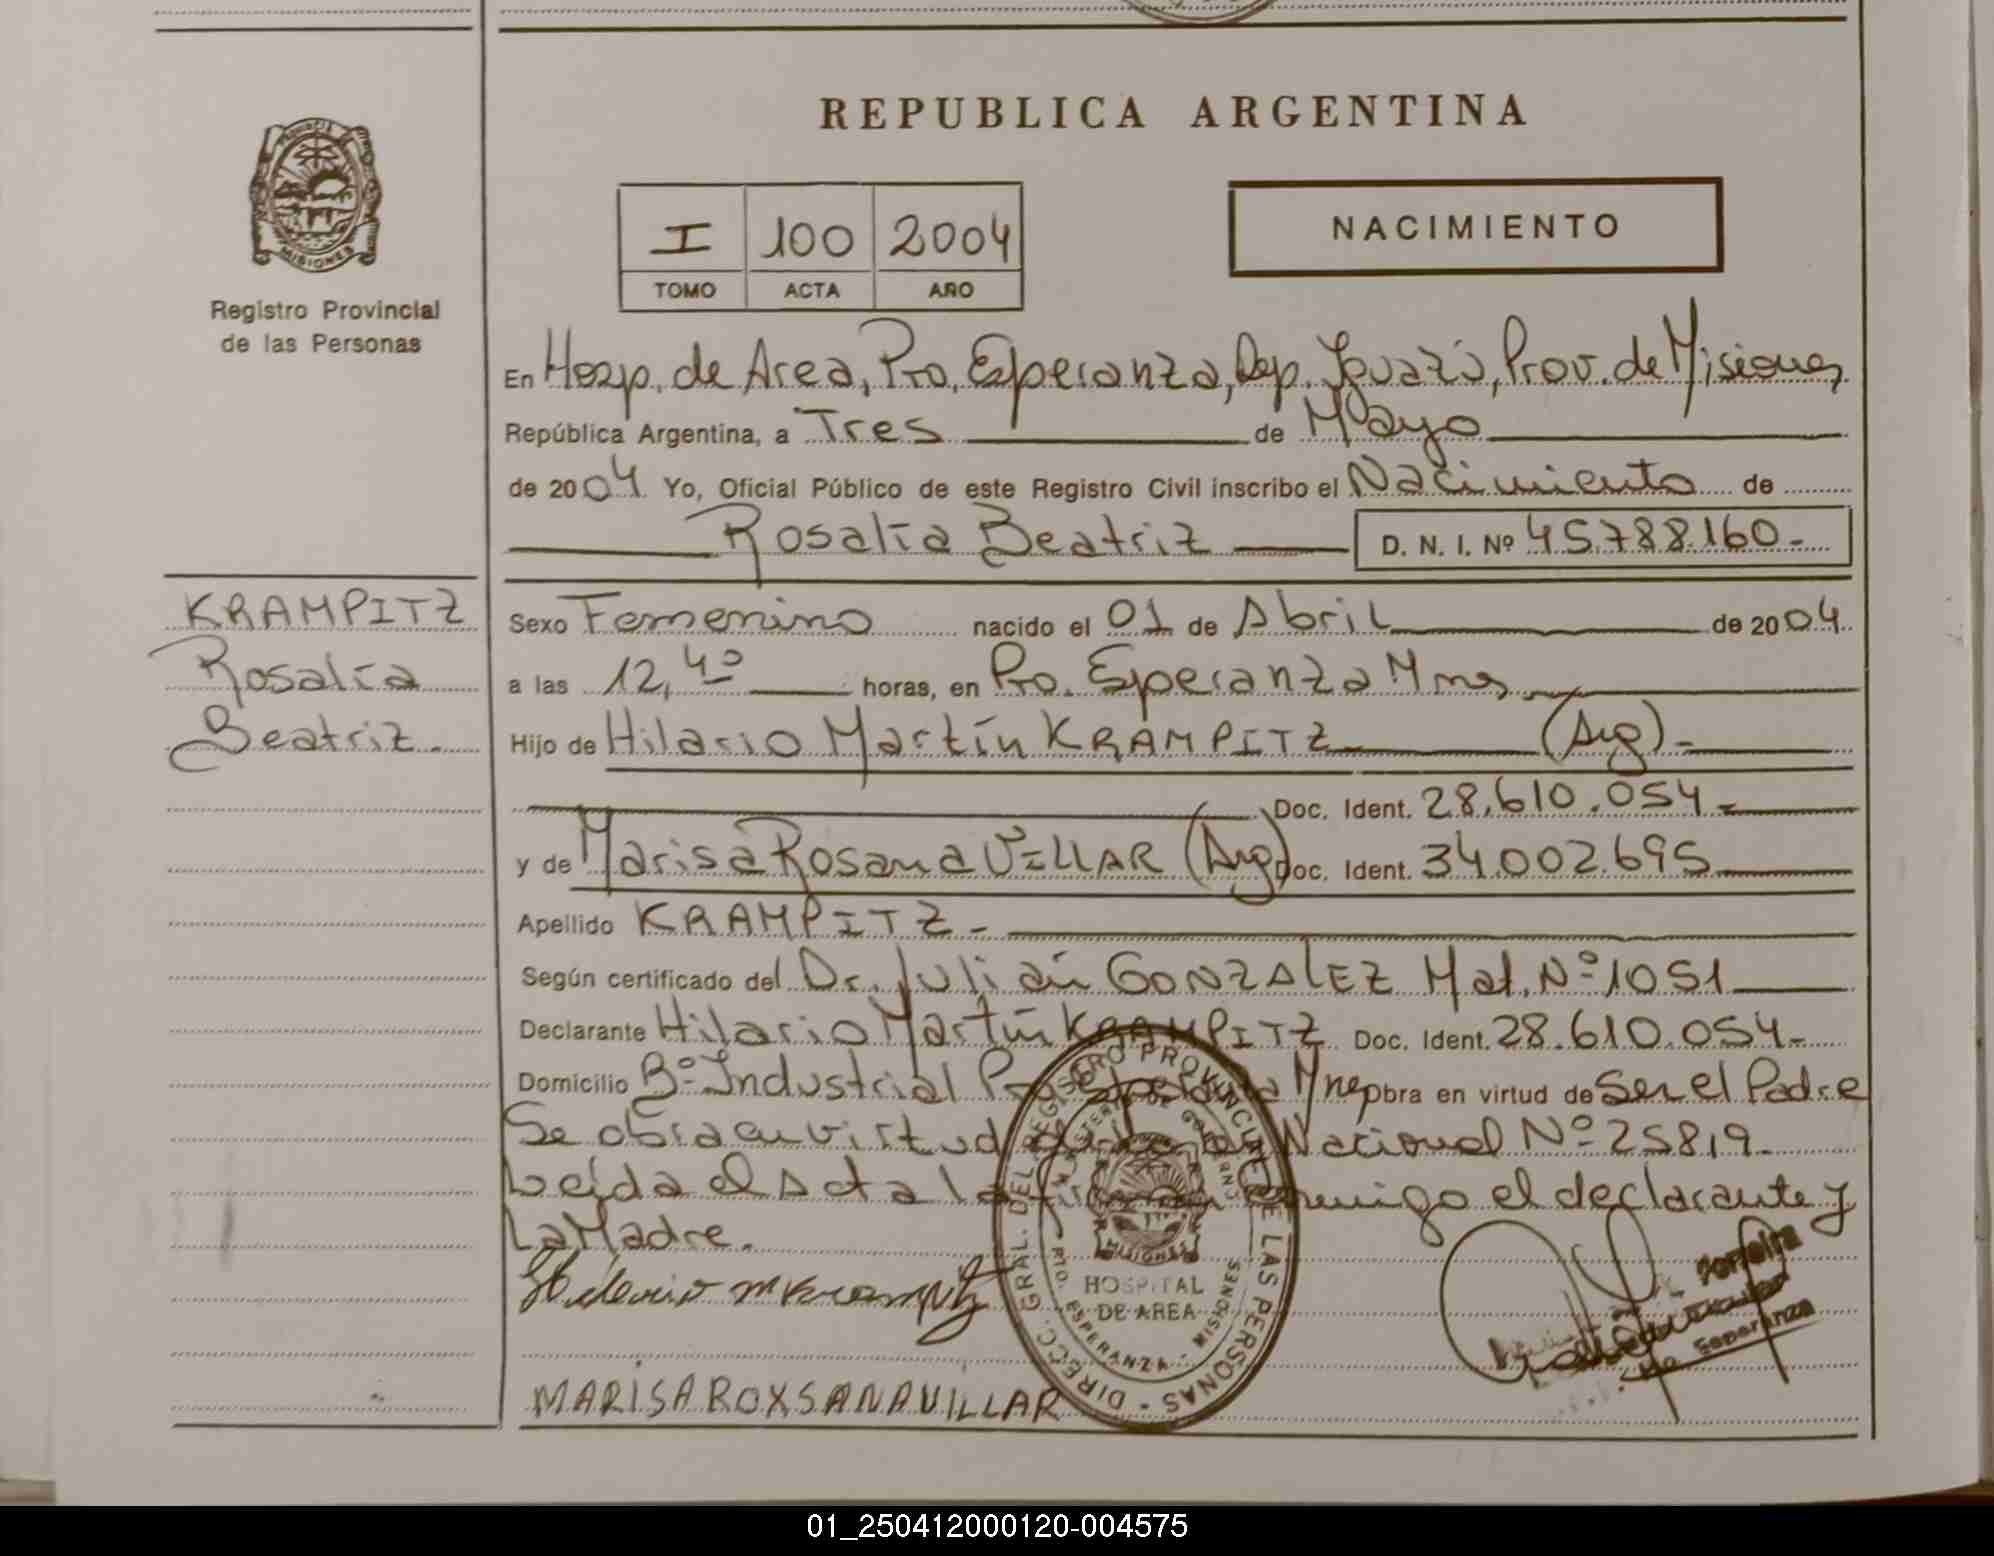 REPUBLICA ARGENTINA
PROVINCIA
MISIONES
Registro Provincial
de las Personas
I 100 2004
TOMO ACTA AÑO
NACIMIENTO
En Hosp. de Area, Pto. Esperanza, Dep. Iguazú, Prov. de Misiones
República Argentina, a Tres de Mayo
de 2004 Yo, Oficial Público de este Registro Civil inscribo el Nacimiento de
Rosalía Beatriz D. N. I. Nº 45.788.160.-
KRAMPITZ
Rosalía
Beatriz.
Sexo Femenino nacido el 01 de Abril de 2004
a las 12,40 horas, en Pto. Esperanza Mnes
Hijo de Hilario Martín KRAMPITZ (Arg).-
Doc. Ident. 28.610.054.-
y de Marisa Rosana VILLAR (Arg) Doc. Ident. 34.002.695
Apellido KRAMPITZ.-
Según certificado del Dr. Julián GONZALEZ Mat. Nº 1051
Declarante Hilario Martín KRAMPITZ Doc. Ident. 28.610.054.-
Domicilio Bº Industrial Pto. Esperanza Mnes obra en virtud de Ser el Padre
Se obra en virtud de la Ley Nacional Nº 25819.
Leída el Acta la firman conmigo el declarante y
La Madre.
MARISA ROXSANA VILLAR
DIRECC. GRAL. DEL REGISTRO PROVINCIAL DE LAS PERSONAS
MINISTERIO DE GOBIERNO
MISIONES
HOSPITAL
DE AREA
PTO. ESPERANZA - MISIONES
Ferreira
Esperanza
01_250412000120-004575